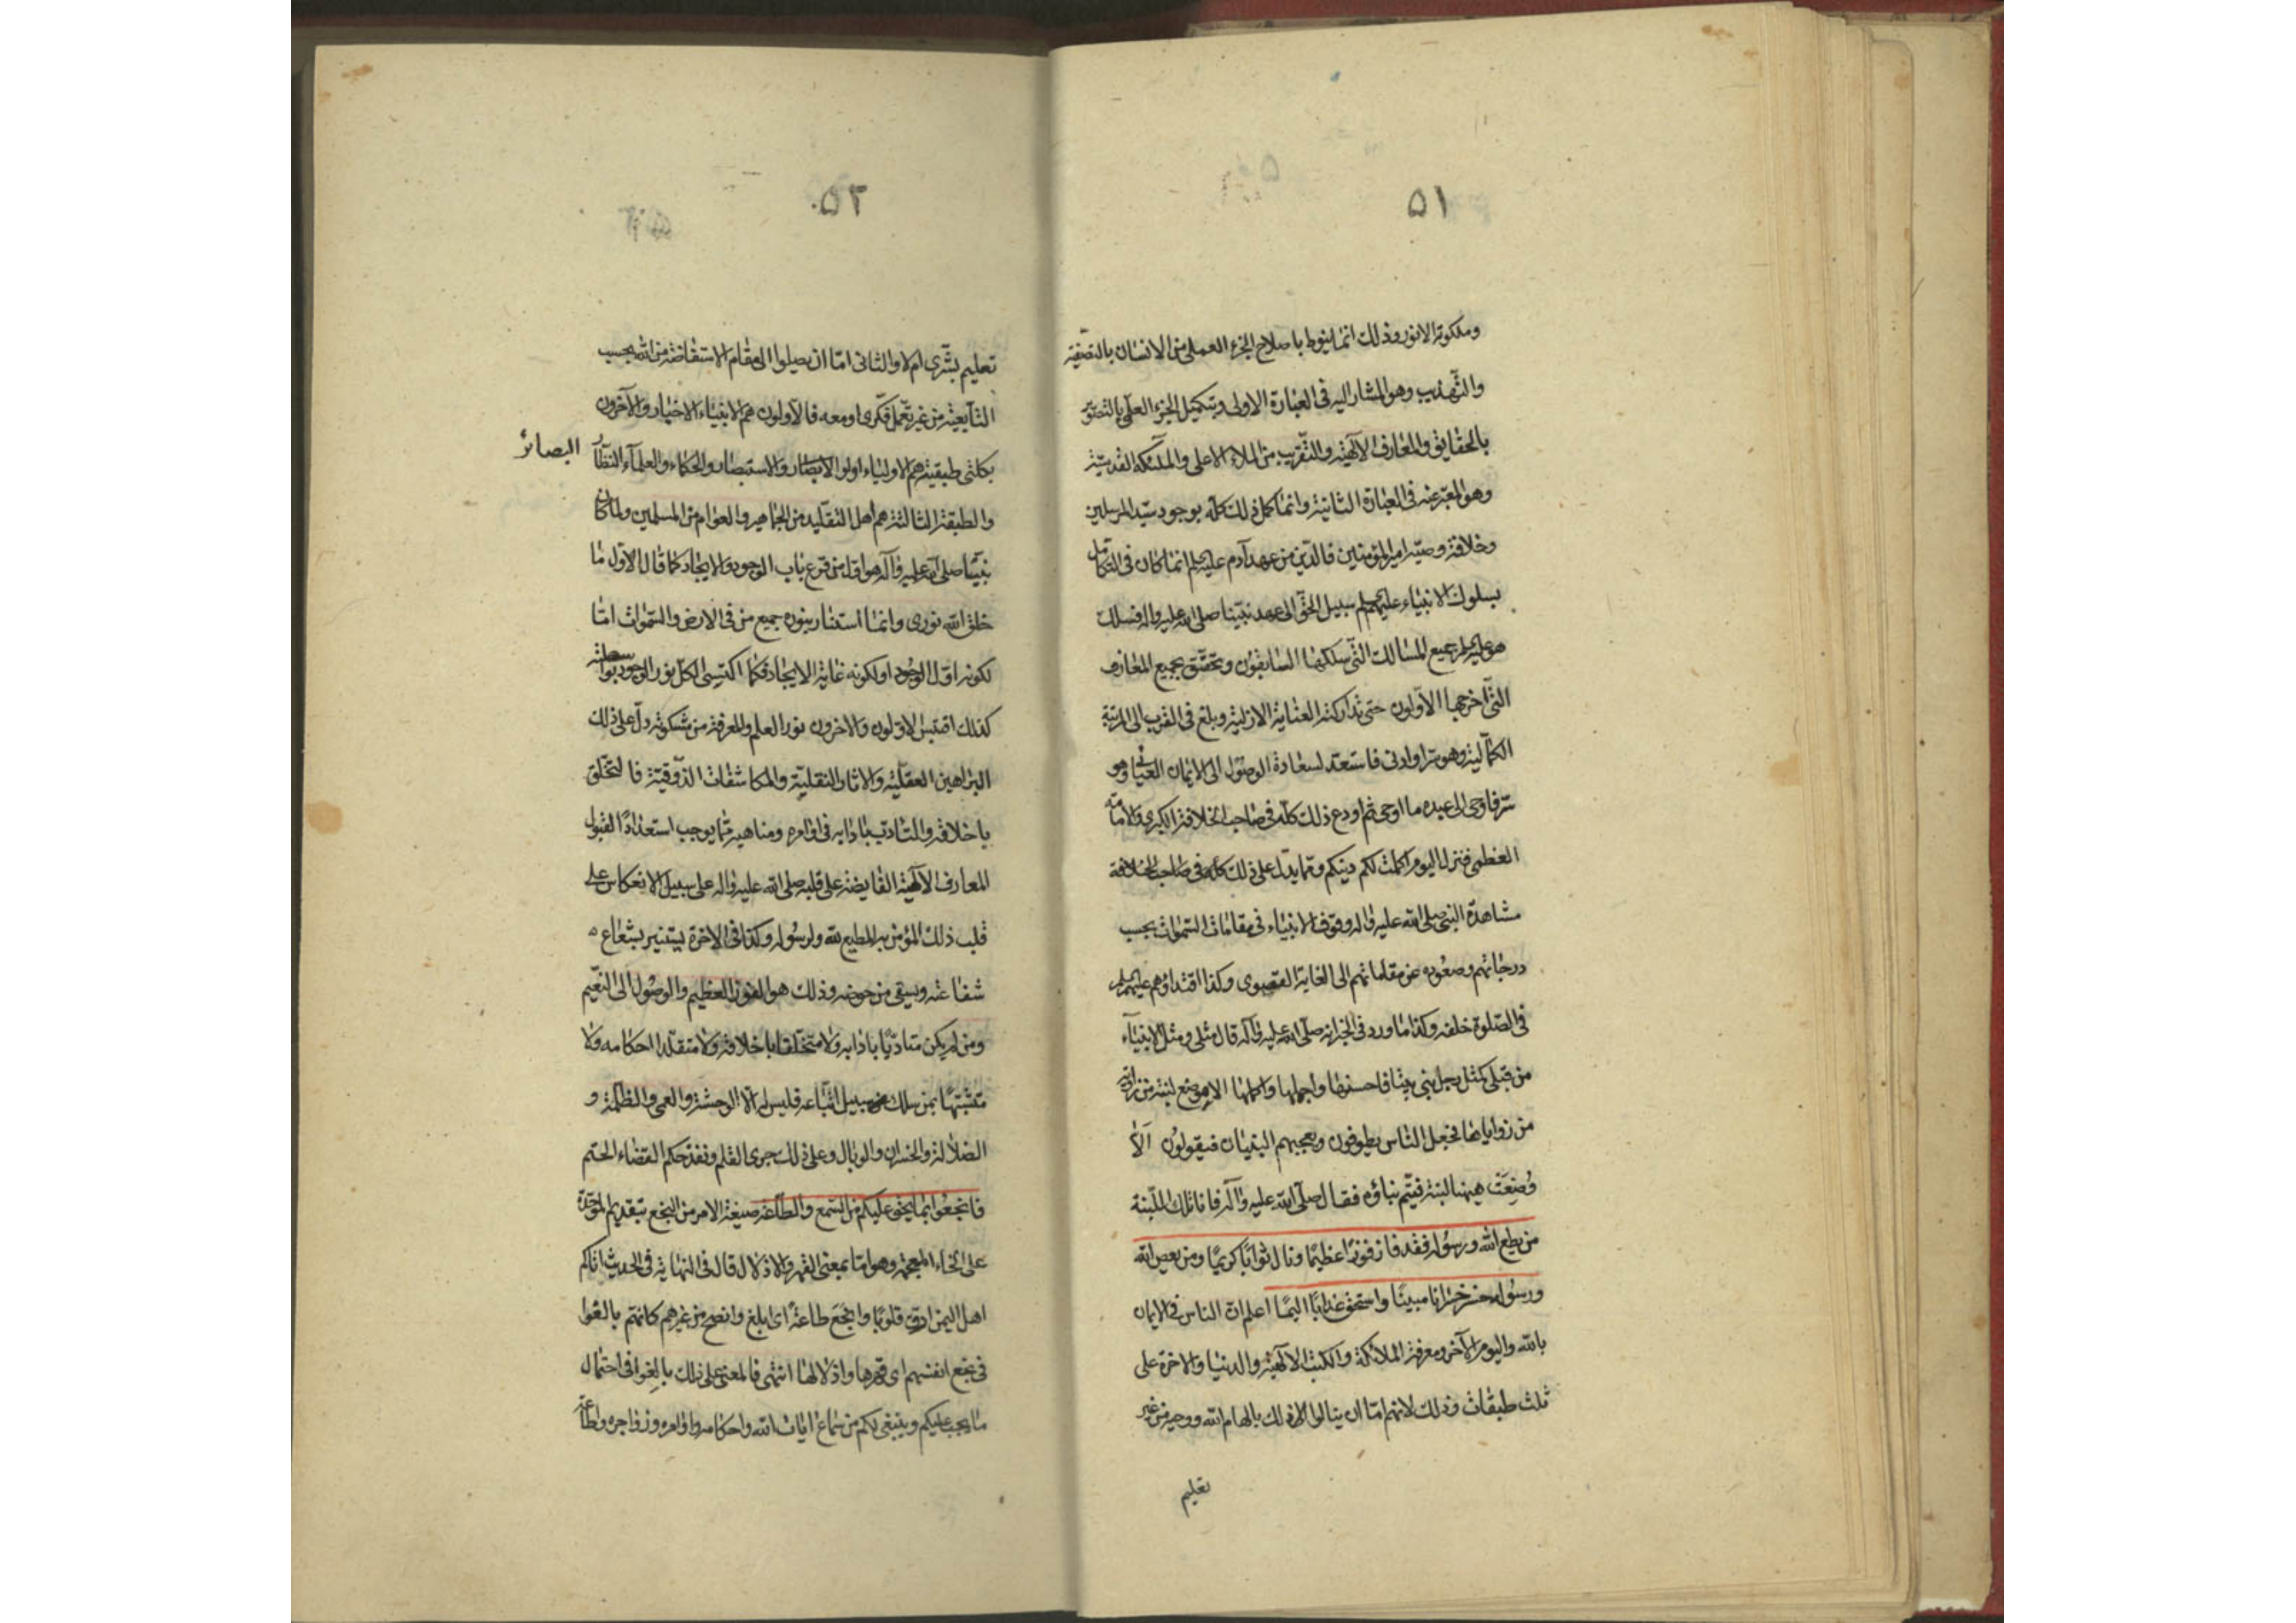 ٥١
وملكوته الانور وذلك انما ينوط باصلاح الجزء العملى من الانسان بالتصفية
والتهذيب وهو المشار اليه فى العبارة الاولى وبتكميل الجزء العلمى بالتصور
بالحقايق والمعارف الآلهية والتقرب من الملاء الاعلى والملئكه القدسية
وهو المعبر عنه فى العبارة الثانية وانما كمل ذلك كله بوجود سيد المرسلين
وخلافة وصيه امير المؤمنين فالدين من عهد آدم عليه انما كان فى التكامل
بسلوك الانبياء عليهم سبيل الحق الى عهد نبينا صلى الله عليه واله فسلك
هو جميع المسالك التى سلكها السابقون وتحقق بجميع المعارف
التى اخرجها الاولون حتى تداركته العناية الازلية وبلغ فى القرب الى المرتبة
الكمالية وهو سر او ادنى فاستعد لسعادة الوصول الى الايمان العيانى وهو
سر فاوحى الى عبده ما اوحى ثم اودع ذلك كله فى صاحب الخلافة الكبرى والامامة
العظمى فنزل اليوم اكملت لكم دينكم ومما يدل على ذلك كله فى صاحب الخلافة
مشاهدة النبى صلى الله عليه واله وقوف الانبياء فى مقامات السموات بحسب
درجاتهم وصعوده عن مقاماتهم الى الغاية القصوى وكذا اقتداؤهم عليهم
فى الصلوة خلفه وكذا ما ورد فى الخبر انه صلى الله عليه وآله قال مثلى ومثل الانبياء
من قبلى كمثل رجل بنى بيتا فاحسنها واجملها واكملها الا موضع لبنة من زاوية
من زواياها فجعل الناس يطوفون ويعجبهم البنيان فيقولون الا
وضعت هيهنا لبنة فيتم بناؤه فقال صلى الله عليه وآله فانا تلك اللبنة
من يطع الله ورسوله فقد فاز فوزا عظيما ونال ثوابا كريما ومن يعص الله
ورسوله خسر خسرانا مبينا واستحق عذابا اليما اعلم ان الناس فى الايمان
بالله واليوم الآخر ومعرفة الملائكة والكتب الالهية والدنيا والاخرة على
ثلث طبقات وذلك لانهم اما ان ينالوا ذلك بالهام الله ووحيه من غير
تعليم
٥٢
تعليم بشرى ام لا والثانى اما ان يصلوا الى مقام الاستفاضة من الله بحسب
التابعية من غير تعمل فكرى او معه فالاولون هم الانبياء الاخيار والآخرون
بكلتى طبقيته هم الاولياء اولوا الابصار والاستبصار والحكماء والعلماء النظار
البصائر
والطبقة الثالثة هم اهل التقليد من الجماهير والعوام من المسلمين ولما كان
نبينا صلى الله عليه وآله هو اول من قرع باب الوجود والايجاد كما قال الاول ما
خلق الله نورى وانما استنار بنوره جميع من فى الارض والسموات اما
لكونه اول الوجود او لكونه غاية الايجاد فكما اكتسى الكل نور الوجود بواسطته
كذلك اقتبس الاولون والاخرون نور العلم والمعرفة من مشكوته دل على ذلك
البراهين العقلية والاثار النقلية والمكاشفات الذوقية فالتخلق
باخلاقه والتادب بادابه فى اوامره ومناهيه مما يوجب استعدادا لقبول
المعارف الآلهية الفايضة على قلبه صلى الله عليه واله على سبيل الانعكاس على
قلب ذلك المؤمن به المطيع لله ولرسوله وكذا فى الاخرة يستنير بشعاع
شفاعته ويسقى من حوضه وذلك هو الفوز العظيم والوصول الى النعيم
ومن لم يكن متادبا بادابه ولا متخلقا باخلاقه ولا متقلدا احكامه ولا
متشبها بمن سلك سبيل اتباعه فليس له الا الوحشة والعمى والظلمة و
الضلالة والخسران والوبال وعلى ذلك جرى القلم ونفذ حكم القضاء الحتم
فابخعوا بما يحق عليكم من السمع والطاعة صيغة الامر من البخع بتقديم الموحدة
على الخاء المعجمة وهو اما بمعنى القهر والاذلال قال فى النهاية فى الحديث اتاكم
اهل اليمن ارق قلوبا وابخع طاعة اى ابلغ وانصح من غيرهم كانهم بالغوا
فى بخع انفسهم اى قهرها واذلالها انتهى فالمعنى على ذلك بالغوا فى احتمال
ما يجب عليكم وينبغى لكم من سماع ايات الله واحكامه واوامره وزواجره وطاعة